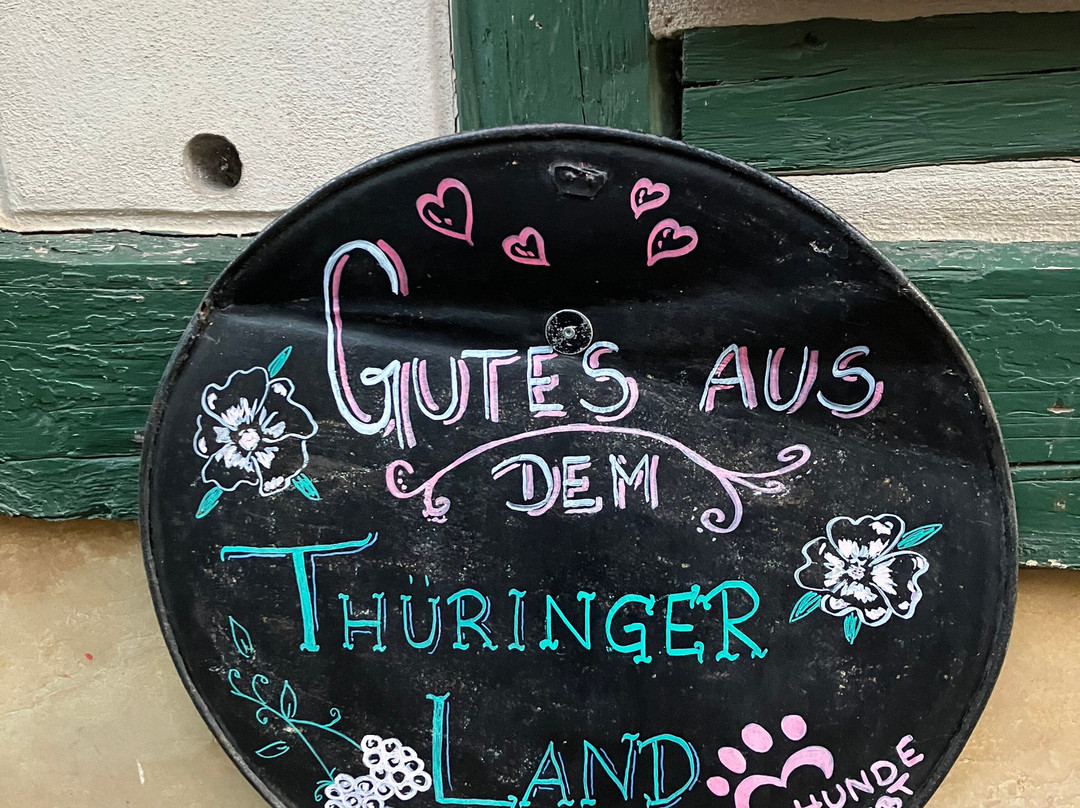 GUTES AUS
DEM
THÜRINGER
LAND
HUNDE